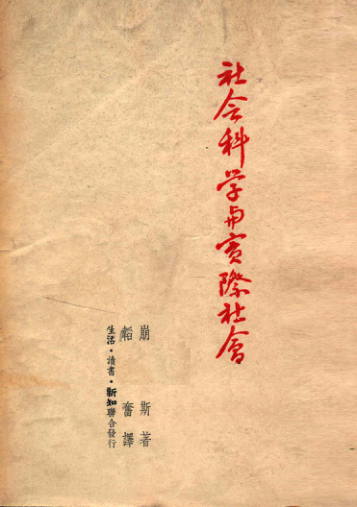 社会科学与實際社會
崩斯著
韜奮譯
生活·讀書·新知聯合發行